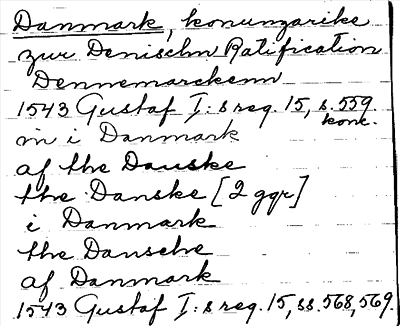 Danmark, konungarike
zur Denischn Ratification
Dennemarckenn
1543 Gustaf I:s reg. 15, s. 559
konc.
in i Danmark
af the Dauske
the Danske [2 ggr]
i Danmark
the Dansche
af Danmark
1543 Gustaf I:s reg. 15, ss. 568, 569.